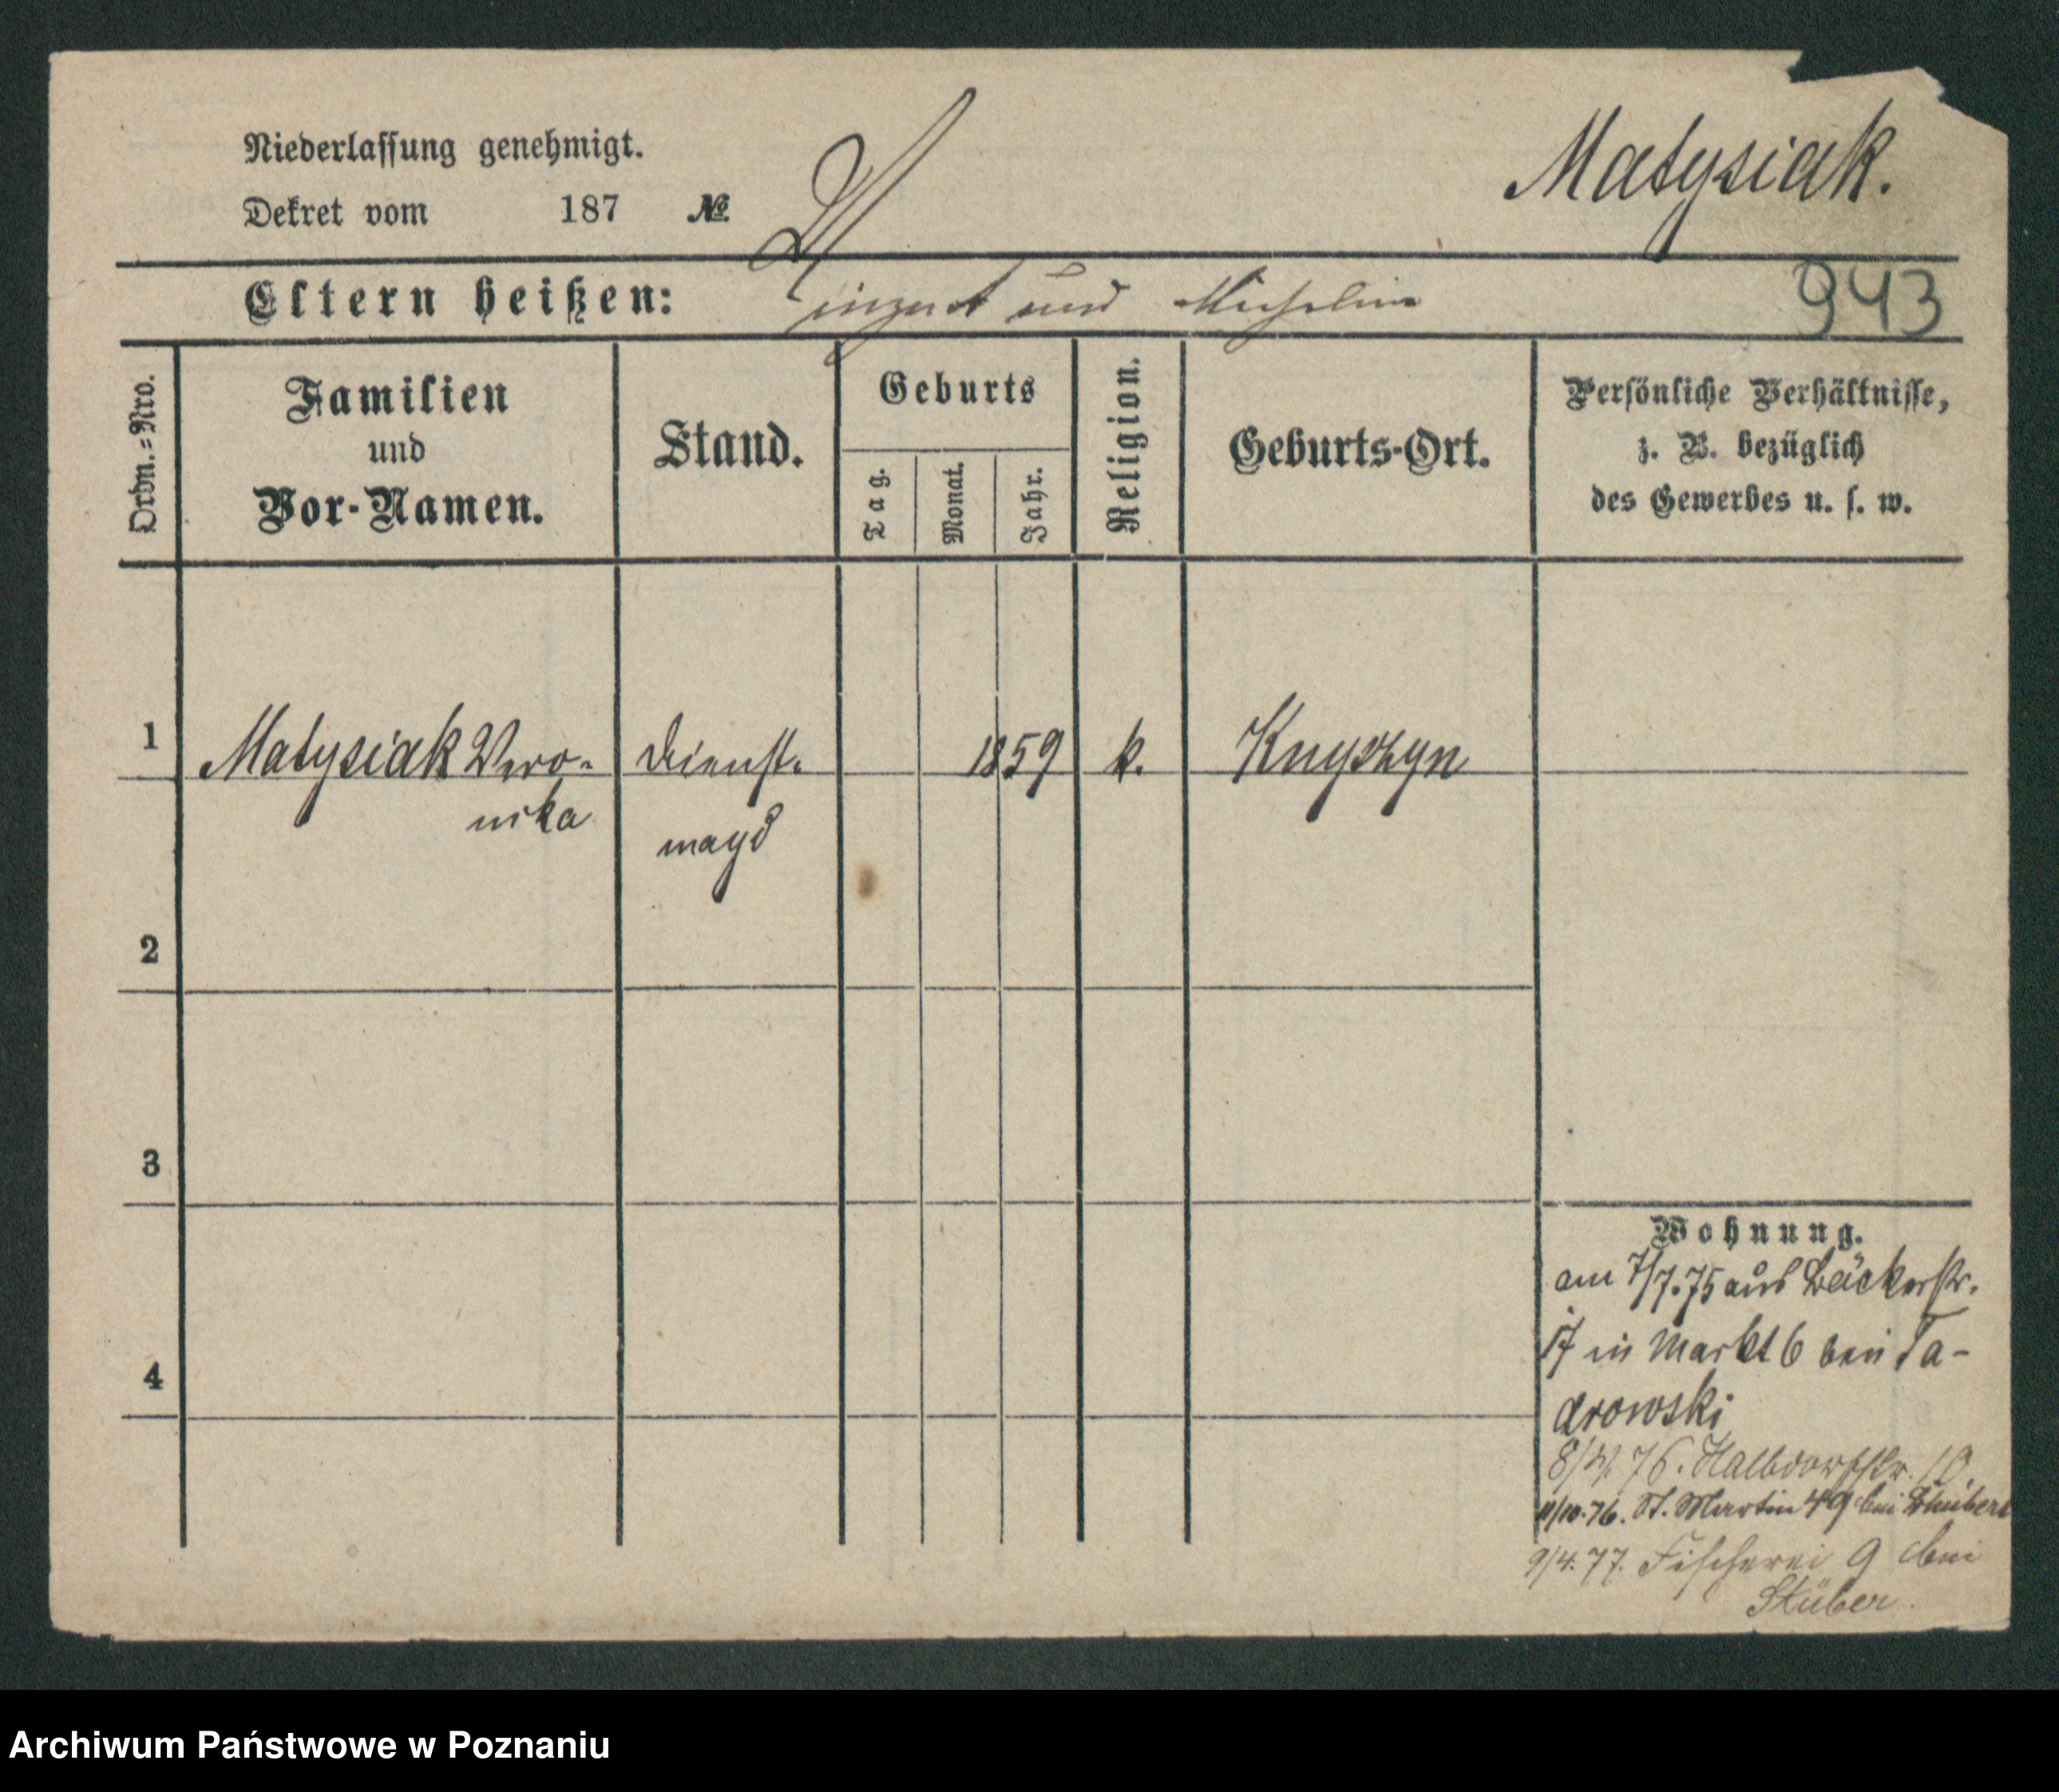 Niederlassung genehmigt.
Matysiak.
Dekret vom 187 №
Eltern heißen: und 943
Ordn.=Nro.
Familien
und
Vor-Namen.
Stand.
Geburts
Tag.
Monat.
Jahr.
Religion.
Geburts-Ort.
Persönliche Verhältnisse,
z. B. bezüglich
des Gewerbes u. s. w.
1 Matysiak Vero- Dienst- 1859 k. Knyszyn
nika magd
2
3
4
Wohnung.
am 7/7.75 aus Bäckerstr.
17 in Markt 6 bei Ta-
drowski
76. Halbdorfstr. 10.
11/10.76. St. Martin 49 bei
9/4.77. Fischerei 9 bei
Stüber.
Archiwum Państwowe w Poznaniu